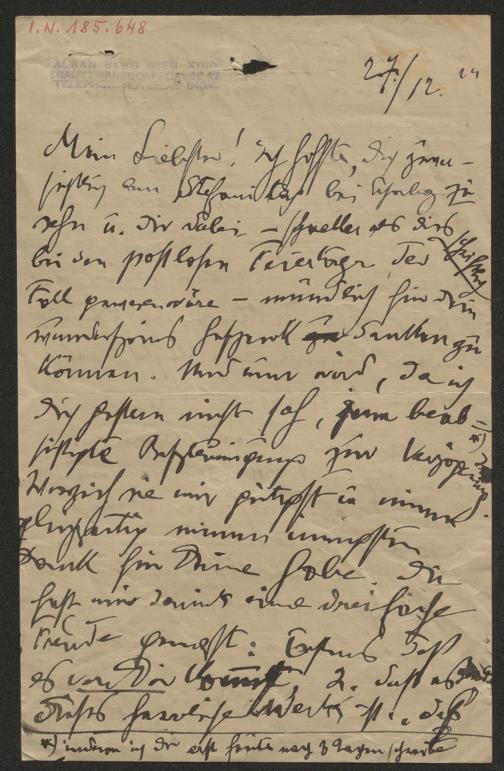 I.N. 185.648
ALBAN BERG WIEN XIII/1
TRAUTTMANSDORFFGASSE 27
TELEPHON
27./12.
Mein Liebster! Ich hoffte, dich
am Stefanitag bei zu
sehn u. dir dabei – schneller als dies
schriftlich
bei den postlosen Feiertagen der
Fall gewesen wäre – mündlich für dein
wunderschönes danken zu
können. Und nun wird, da ich
dich gestern nicht sah, beab-
sichtigte Beschleunigung zur Verzögerung. *)
Verzeih sie mir gütigst u. nimm
meinen innigsten
Dank für Deine Gabe. Du
hast mir damit eine dreifache
Freude gemacht: Erstens daß
es von Dir kommt, 2. daß es
dieses herrliche Werk ist, daß
*) indem ich dir erst heute nach 3 Tagen schreibe